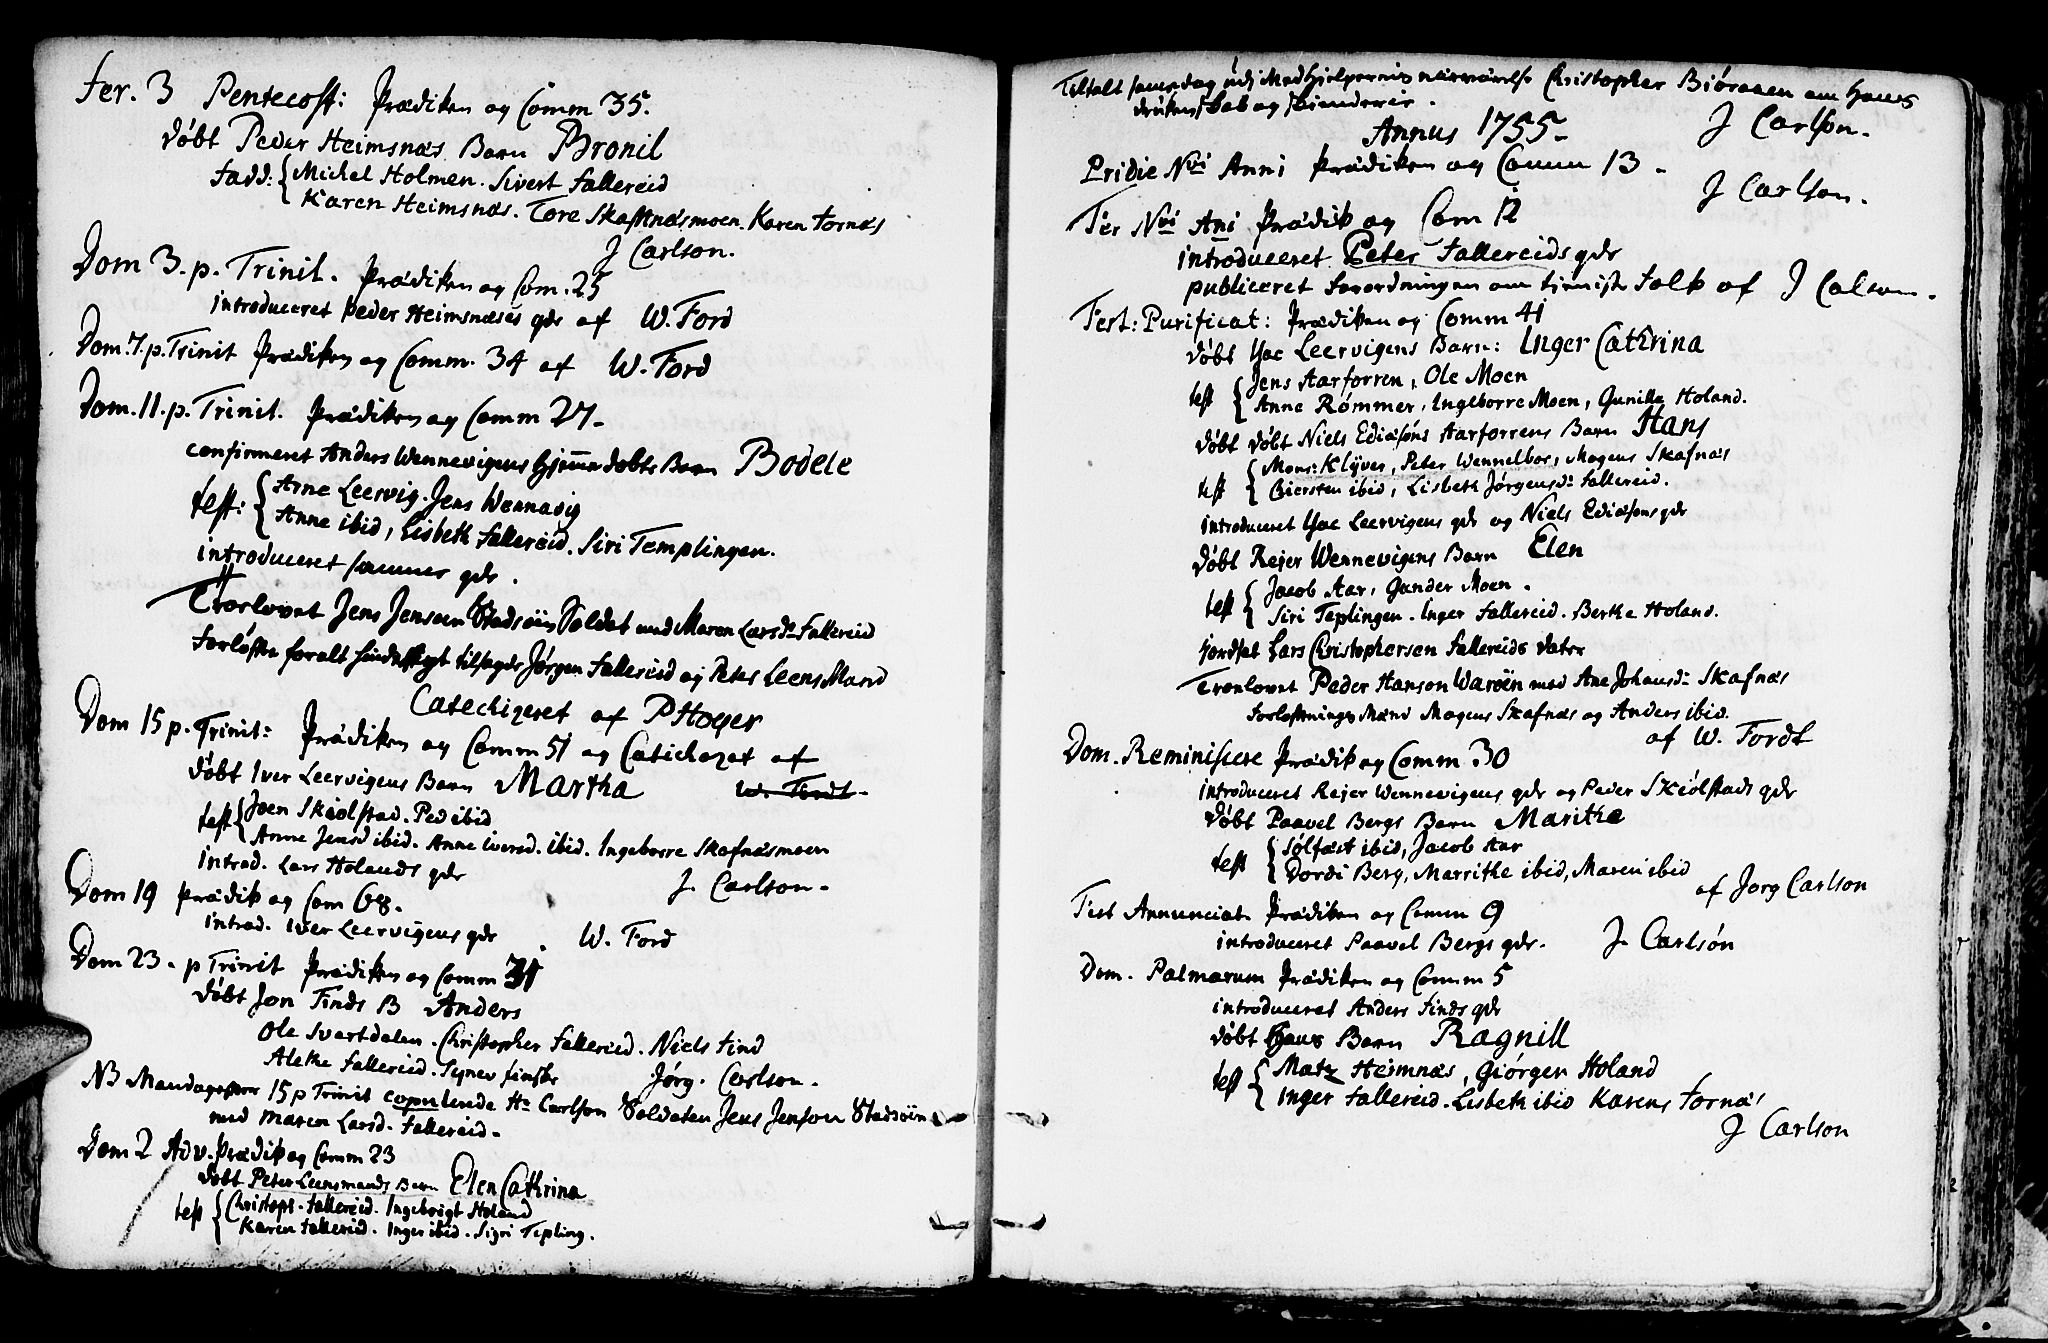 Fer. 3 Pentecost: Prædiken og Comm 35.
døbt Peder Heimsnæs Barn Bronil
fadd: Michel Holmen. Sivert Fallereid
Karen Heimsnæs. Tore Skafnæsmoen. Karen Fornæs
J Carlson.
Dom 3. p. Trinit. Prædiken og Com. 25
introduceret Peder Heimsnæses qdr af W. Ford
Dom. 7. p. Trinit Prædiken og Comm. 34 af W. Ford
Dom. 11. p. Trinit. Prædiken og Comm 27.
confirmeret Anders Wennevigens hjemme døbte Barn Bodele
test: Arne Leervig. Jens Wennevig
Anne ibid, Lisbeth Fallereid. Siri Templingen.
introduceret sammes qdr.
Troelovet Jens Jensen Stadsøin Soldat med Maren Larsd. Fallereid
Forløfte foralt tilsagde Jørgen Fallereid og Peter Leensmand
Catechizeret af P Hoyer
Dom 15 p. Trinit: Prædiken og Comm 51 og Catichezet af
døbt Iver Leervigens Barn Martha W. Fordt.
test Joen Skiølstad. Ped ibid
Anne Jensd ibid. Anne iversd. ibid. Ingeborre Skafnæsmoen
introd. Lars Holands qdr
J. Carlson.
Dom 19 Prædik og Com 68.
introd. Iver Leervigens qdr W. Ford
Dom 23. p Trinit Prædiken og Comm 31
døbt Jon Finds B Anders
Ole Svartdalen. Christopher Fallereid. Niels Find
Alethe Fallereid. Signev finske Jørg. Carlson.
NB Mandagen 15 p Trinit copulerede Hr Carlson Soldaten Jens Jenson Stadsøin
med Maren Larsd. Fallereid.
Dom 2 Adv. Prædik og Comm 23
døbt Peter Leensmands Barn Elen Cathrina
test Christoph. Fallereid. Ingebrigt Holand
Karen Fallereid. Inger ibid. Sigri Tepling.
Tiltalt samme dag udj Medhjelpernis nærværelse Christopher Biøraaen om hans
drukenskab og skienderie.
J Carlson.
Annus 1755.
Pridie Nvi Anni Prædiken og Comm 13.
J Carlson.
Fer Nvi Ani Prædik og Com 12
introduceret Peter Fallereids qdr
publiceret Forordningen om tieniste Folk af J Calson.
Fest: Purificat: Prædiken og Comm 41
døbt Hac Leervigens Barn: Inger Cathrina
test Jens Aarforren, Ole Moen
Anne Rømmer, Ingeborre Moen, Gunilla Holand.
døbt døbt Niels Ediæsøns Aarforrens Barn Hans
test Mons: Klyver, Peter Wennelbor, Mogens Skafnæs
Giersten ibid, Lisbeth Jørgensd: Fallereid.
introduceret Hac Leervigens qdr og Niels Ediæsons qdr
døbt Rejer Wennevigens Barn Elen
test Jacob Aar, Gunder Moen.
Siri Teplingen. Inger Fallereid. Berthe Holand.
jordfæt Lars Christophersen Fallereids dater
Troelovet Peder Hanson Warøen med Ane Johansd: Skafnæs
Forlofnings Mænd Mogens Skafnæs og Anders ibid.
af W. Fordt
Dom. Reminiscere Prædik og Comm 30
introduceret Rejer Wennevigens qdr og Peder Skiølstads qdr
døbt Paavel Bergs Barn Marithe
test Sølfæst ibid, Jacob Aar
Dordi Berg, Marrithe ibid, Maren ibid
af Jorg Carlson
Fest Annunciat. Prædiken og Comm 9
introduceret Paavel Bergs qdr. J. Carlsøn
Dom. Palmarum Prædiken og Comm 5
introduceret Anders Finds qdr
døbt hans Barn Ragnill
test Matz Heimnæs, Giørgen Holand
Inger Fallereid. Lisbeth ibid Karens Fornæs
J Carlson